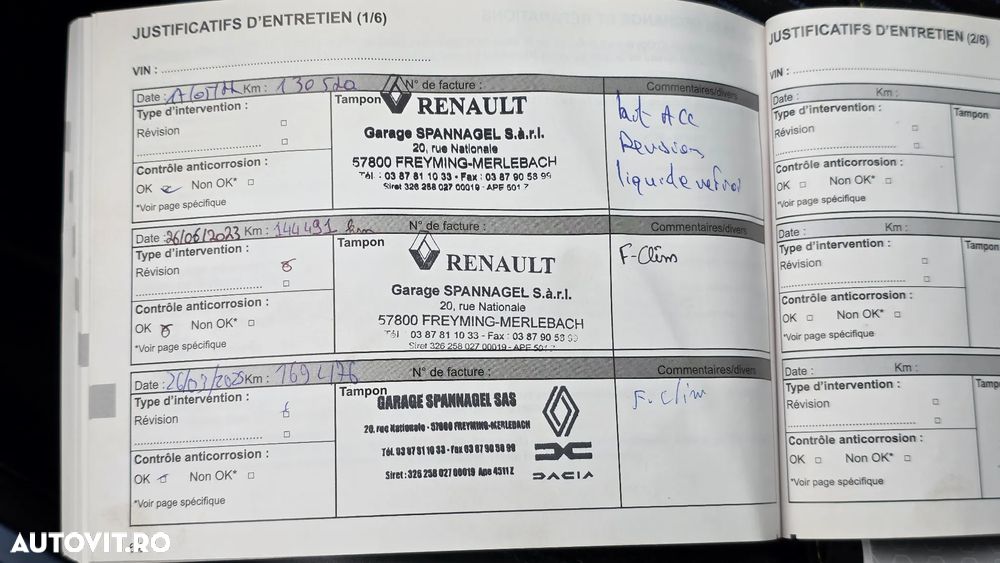 JUSTIFICATIFS D'ENTRETIEN (1/6)
VIN :
Date : Km : 130 520 N° de facture : Commentaires/divers
Type d'intervention :
Révision
Contrôle anticorrosion :
OK Non OK*
*Voir page spécifique
Tampon
RENAULT
Garage SPANNAGEL S.à.r.l.
20, rue Nationale
57800 FREYMING-MERLEBACH
Tél. : 03 87 81 10 33 - Fax : 03 87 90 58 99
Siret 326 258 027 00019 - APE 501 Z
kit ACC
Revision
liquide
Date : 26/06/2023 Km : 144 491 km N° de facture : Commentaires/divers
Type d'intervention :
Révision
Contrôle anticorrosion :
OK Non OK*
*Voir page spécifique
Tampon
RENAULT
Garage SPANNAGEL S.à.r.l.
20, rue Nationale
57800 FREYMING-MERLEBACH
Tél 03 87 81 10 33 - Fax : 03 87 90 58 99
Siret 326 258 027 00019 - APE 501 Z
F-Clim
Date : Km : N° de facture : Commentaires/divers
Type d'intervention :
Révision
Contrôle anticorrosion :
OK Non OK*
*Voir page spécifique
Tampon
GARAGE SPANNAGEL SAS
20, rue Nationale - 57800 FREYMING-MERLEBACH
Tél. 03 87 81 10 33 - Fax 03 87 90 58 99
Siret : 326 258 027 00019 Ape 4511 Z
DACIA
F. Clim
JUSTIFICATIFS D'ENTRETIEN (2/6)
VIN :
Date : Km :
Type d'intervention :
Révision
Contrôle anticorrosion :
OK Non OK*
*Voir page spécifique
Tampon
Date : Km :
Type d'intervention :
Révision
Contrôle anticorrosion :
OK Non OK*
*Voir page spécifique
Tampon
Date : Km :
Type d'intervention :
Révision
Contrôle anticorrosion :
OK Non OK*
*Voir page spécifique
Tampon
AUTOVIT.RO